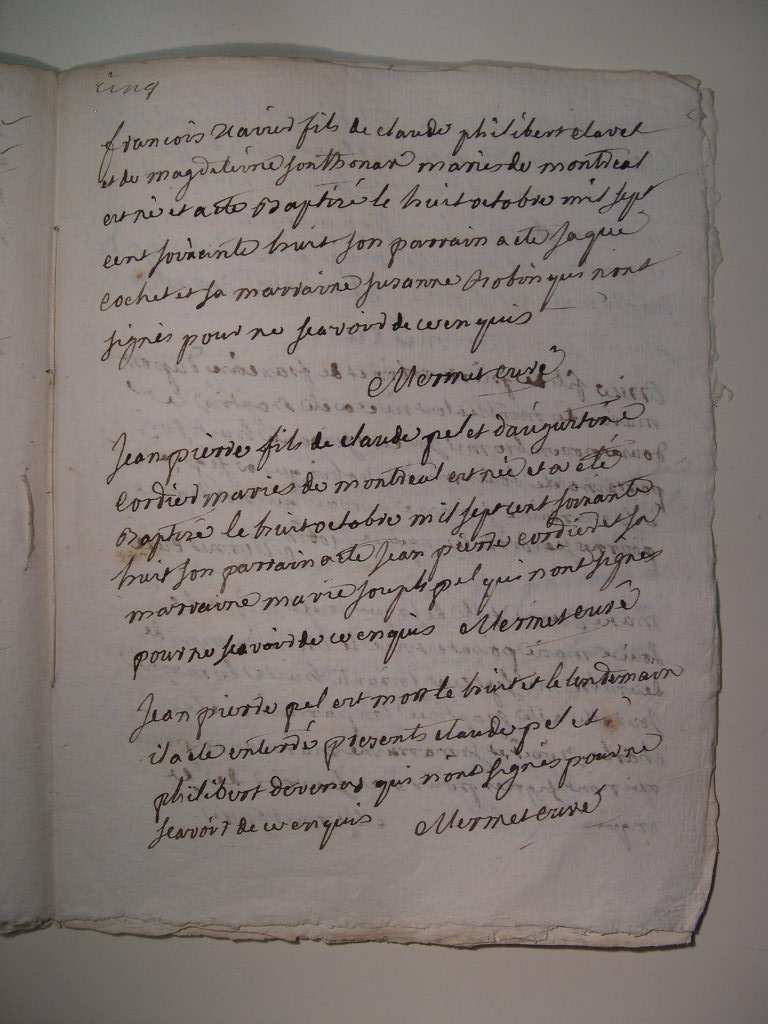 cinq
francois xavier fils de claude philibert clavel
et de magdeleine sonthonax maries de montreal
est né et a eté Baptizé le huit octobre mil sept
cent soixante huit son parrain a eté jaque
cochet et sa marraine susanne Robin qui nont
signés pour ne scavoir de ce enquis
Mermet curé
Jean pierre fils de claude pel et daugustine
cordier maries de montreal est née et a été
Baptizé le huit octobre mil sept cent soixante
huit son parrain a eté jean pierre cordier et sa
marraine marie joseph pel qui nont signés
pour ne scavoir de ce enquis Mermet curé
Jean pierre pel est mort le huit et le lendemain
il a eté enterré presents claude pel et
philibert qui nont signés pour ne
scavoir de ce enquis Mermet curé